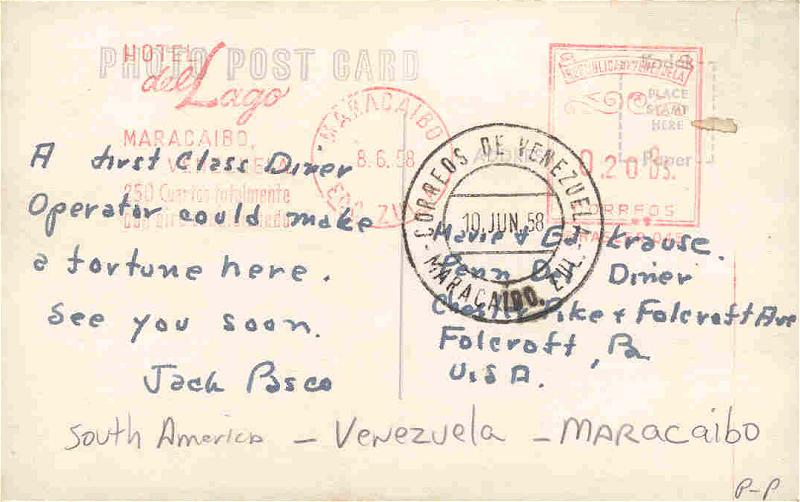 HOTEL
del Lago
PHOTO POST CARD
MARACAIBO,
VENEZUELA
250 Cuartos totalmente
con aire
MARACAIBO
8.6.58
EDO. ZULIA
REPUBLICA DE VENEZUELA
0.20 Bs.
CORREOS
Kodak
PLACE
STAMP
HERE
Paper
ADDRESS
CORREOS DE VENEZUELA
10.JUN.58
MARACAIBO. ZUL.
A first Class Diner
Operator could make
a fortune here.
See you soon.
Jack Posco
& Ed Krause.
Penn Diner
Chester Pike & Folcroft Ave
Folcroft, Pa
U.S.A.
South America – Venezuela – MARACAIBO
P-P